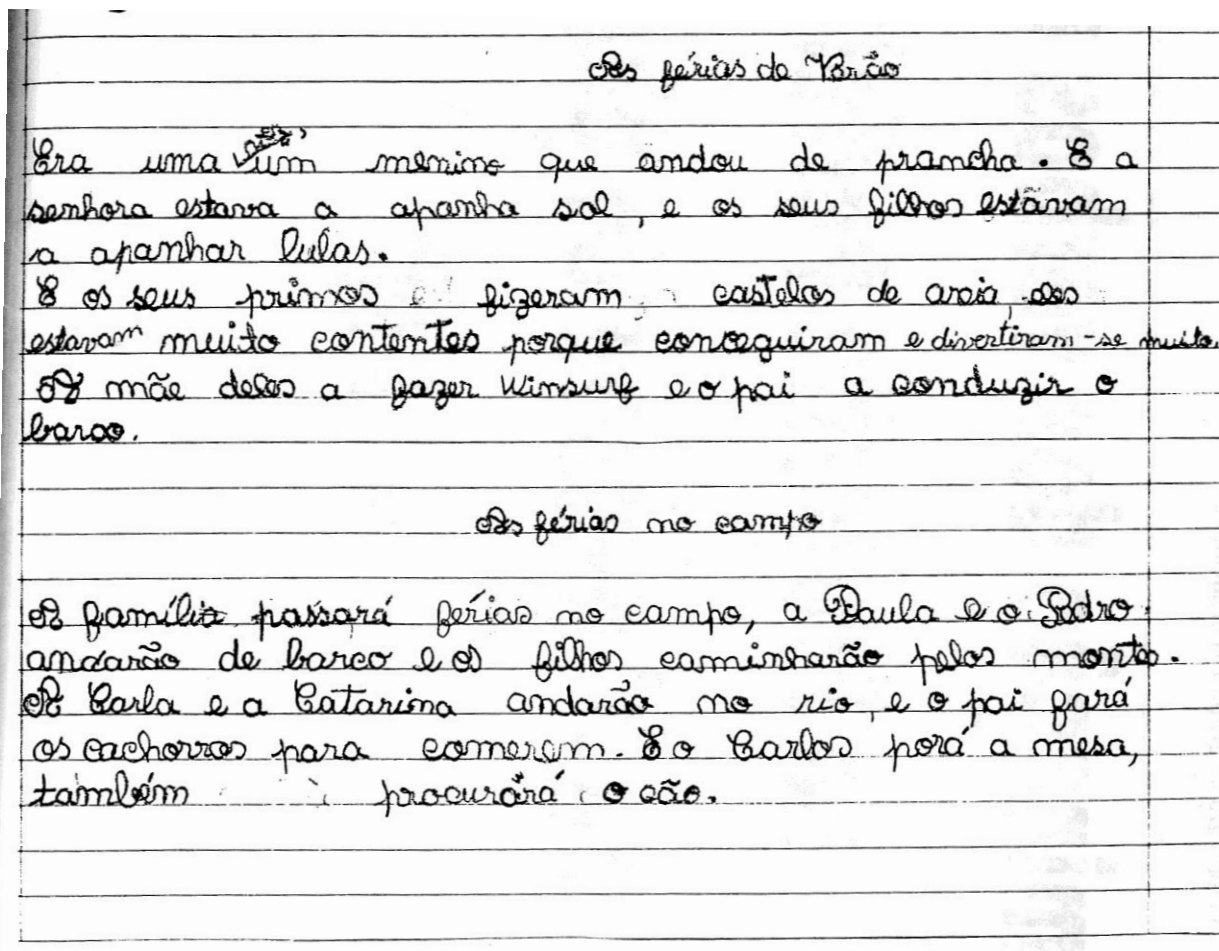 As férias da Vrão
Era uma vez, um menino que andou de prancha. E a
senhora estava a apanha sol, e os seus filhos estavam
a apanhar lulas.
E os seus primos fizeram castelos de areia, eles
estavam muito contentes porque conceguiram e divertiram-se muito.
A mãe deles a fazer Winsurf e o pai a conduzir o
barco.
As férias no campo
A família passará férias no campo, a Paula e o Pedro
andarão de barco e os filhos caminharão pelos monts.
A Carla e a Catarina andarão no rio, e o pai fará
os cachorros para comerem. E o Carlos porá a mesa,
também procurará o cão.